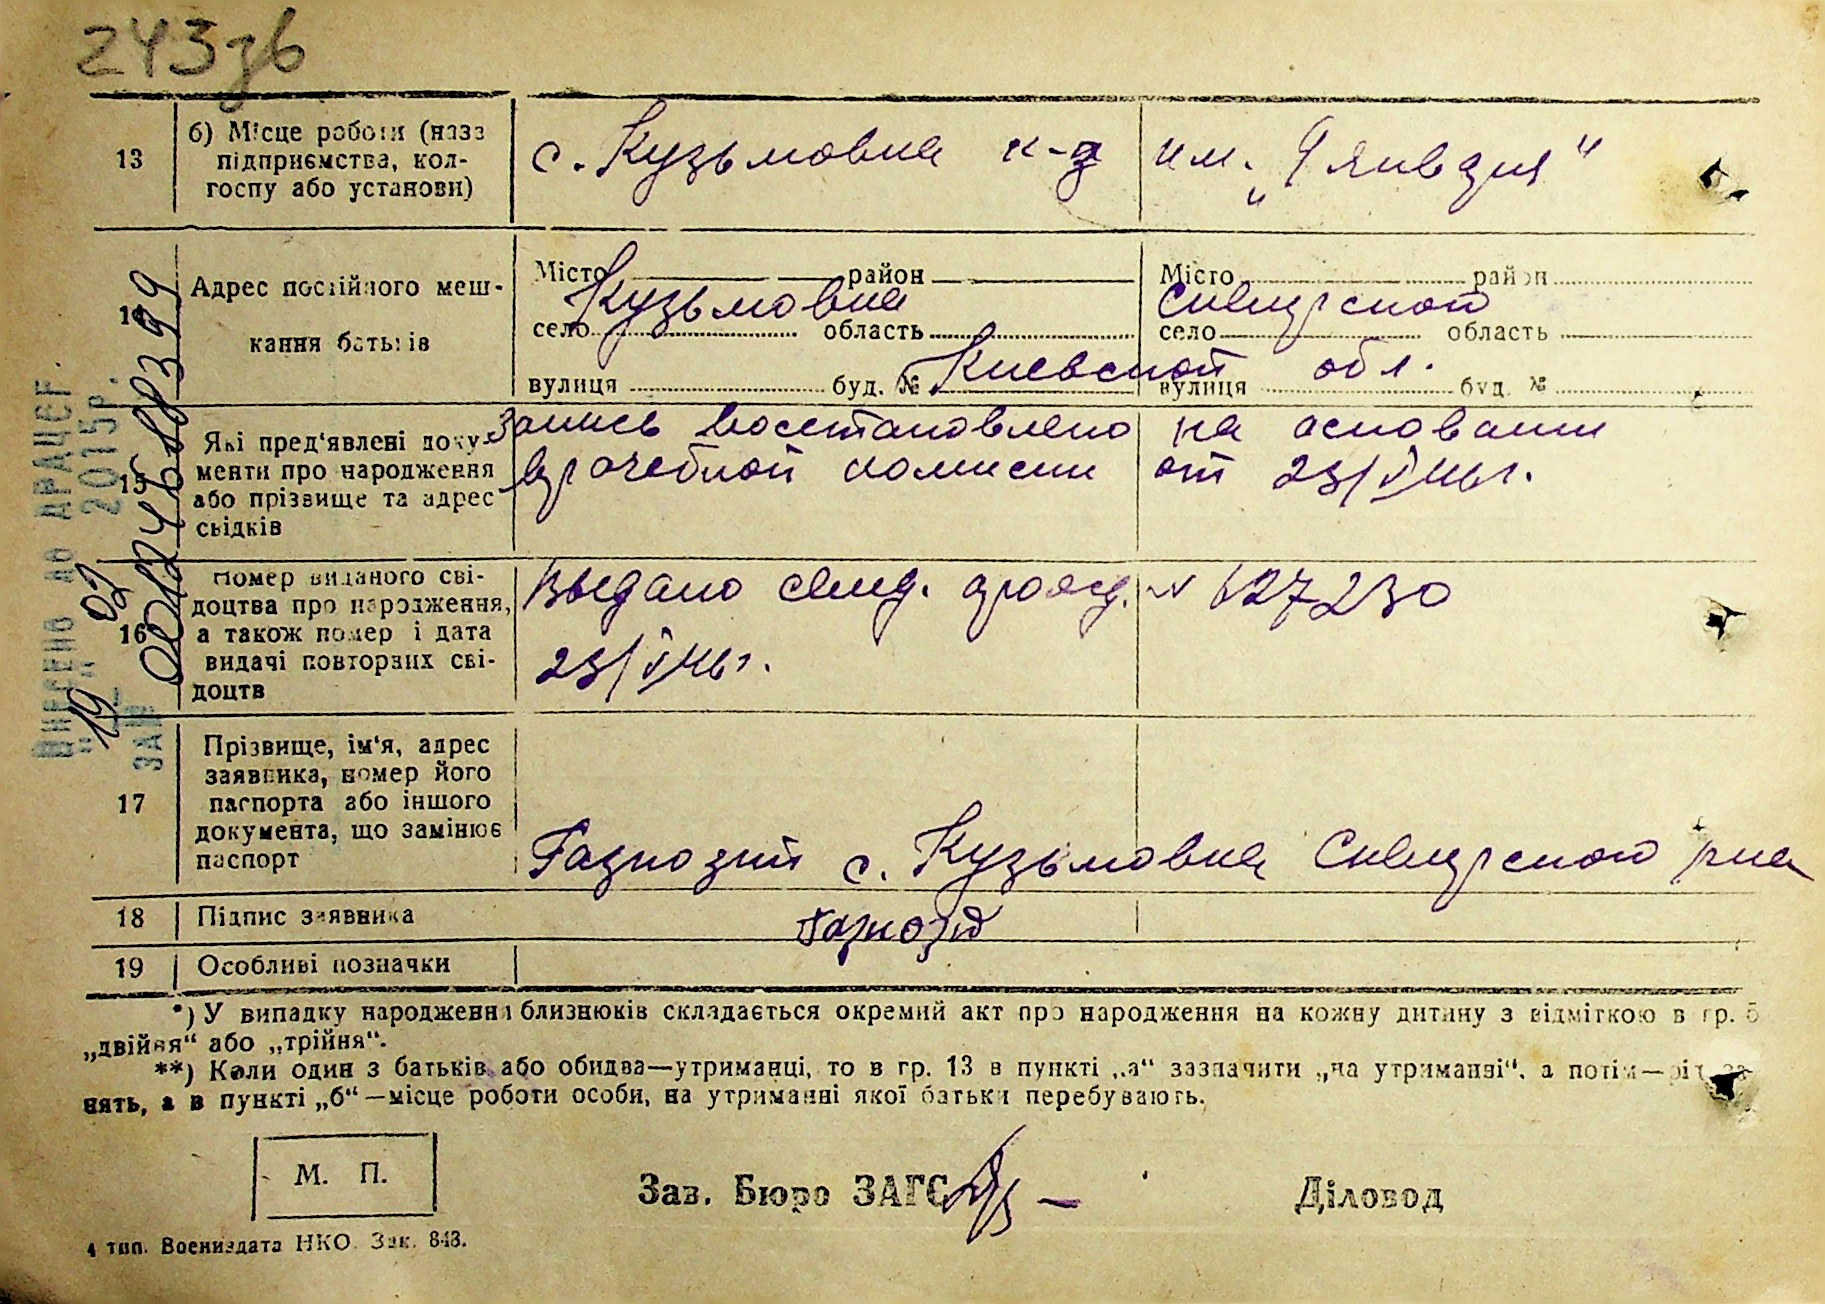 243зв
13
б) Місце роботи (назва
підприємства, кол-
госпу або установи)
с. Кузьмовка к-з им. „9 января“
Адрес постійного меш-
кання батьків
Місто район Місто район
Кузьмовка Сквирского
село область село область
Киевской обл.
вулиця буд. № вулиця буд. №
15
Які пред'явлені доку-
менти про народження
або прізвище та адрес
свідків
Запись восстановлено на основании
врачебной комиссии от 23/V 46г.
16
Номер виданого сві-
доцтва про народження,
а також номер і дата
видачі повторних сві-
доцтв
Выдано свид. о рожд. № 627230
23/V 46г.
17
Прізвище, ім'я, адрес
заявника, номер його
паспорта або іншого
документа, що замінює
паспорт
с. Кузьмовка Сквирского р-на
18
Підпис заявника
19
Особливі позначки
*) У випадку народження близнюків складається окремий акт про народження на кожну дитину з відміткою в гр. 5
„двійня“ або „трійня“.
**) Коли один з батьків або обидва—утриманці, то в гр. 13 в пункті „а“ зазначити „на утриманні“, а потім—рід за-
нять, а в пункті „б“—місце роботи особи, на утриманні якої батьки перебувають.
М. П.
Зав. Бюро ЗАГС
Діловод
4 тип. Воениздата НКО. Зак. 843.
Внесено до ДРАЦСГ.
"19" 02 2015р.
ЗА №
00124588399